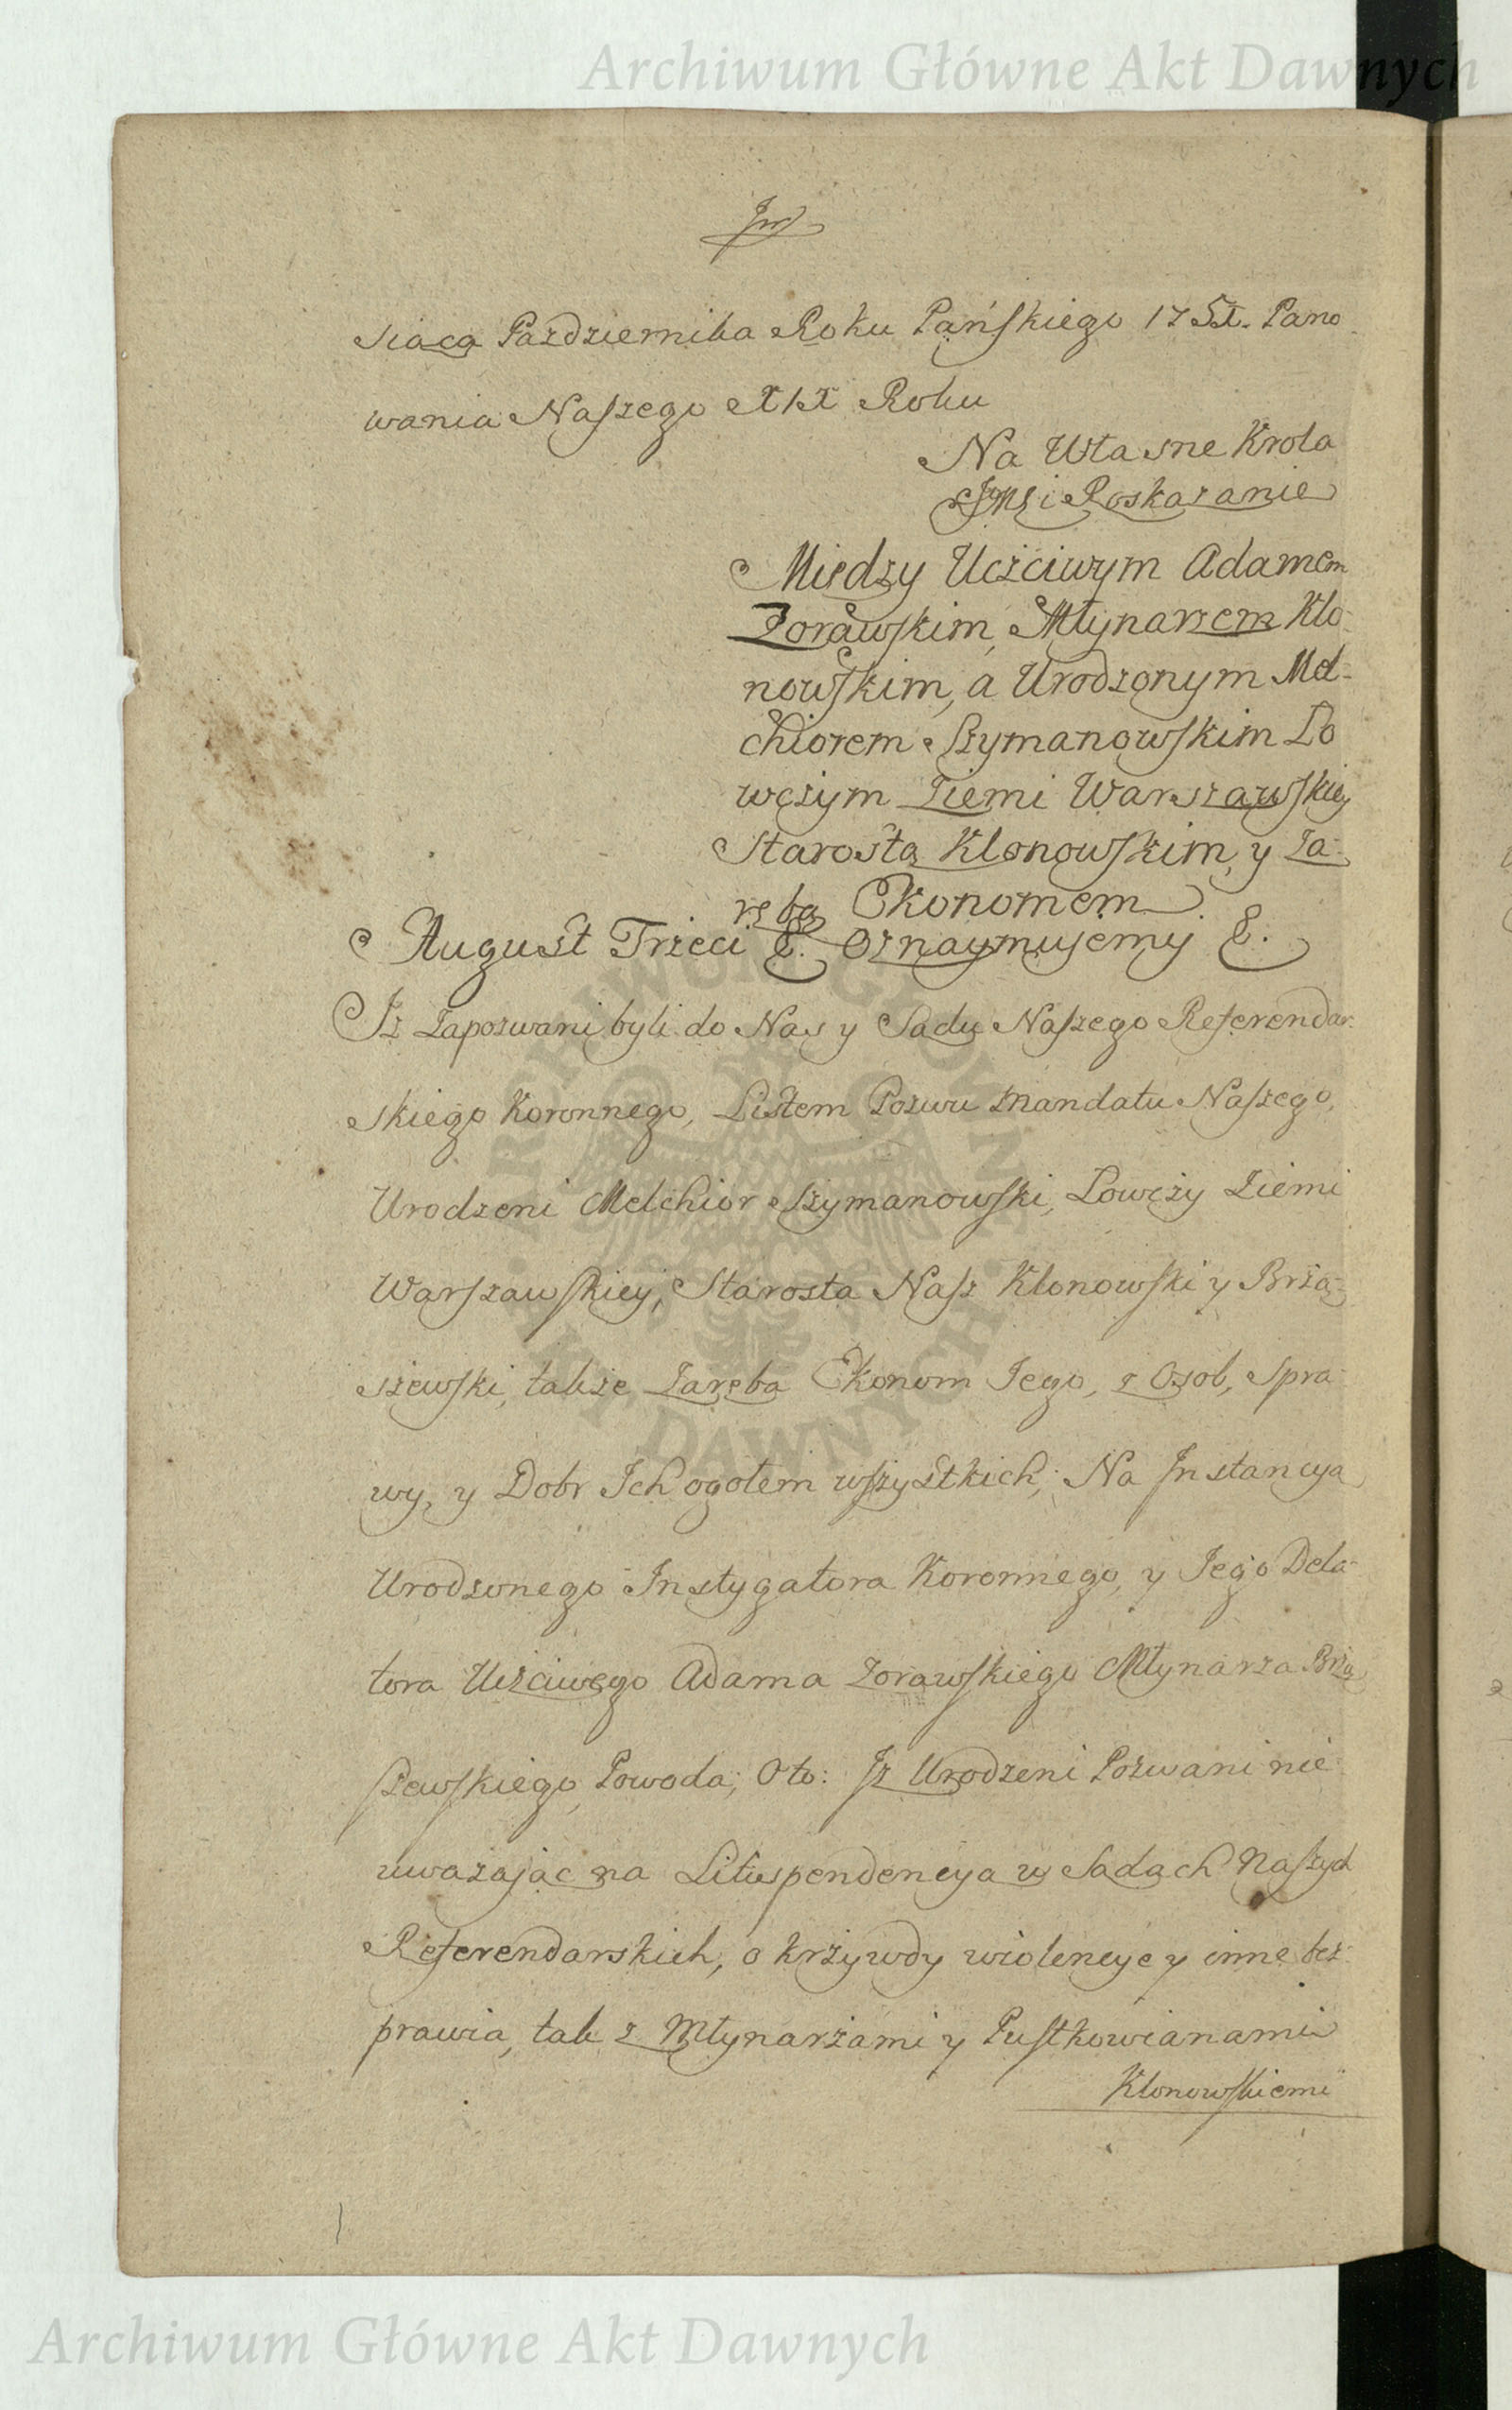 Archiwum Główne Akt Dawnych
siąca Pazdziernika Roku Pańskiego 1751. Pano
wania Naszego XIX Roku
Na Własne Krola
JMci Roskazanie
Między Ucżciwym Adamem
Zorawskim, Młynarzem Klo-
nowskim, a Urodzonym Mel-
chiorem Szymanowskim Ło
wcżym Ziemi Warszawskiey
Starostą Klonowskim, y Za-
rębą Ekonomem.
August Trzeci &. Oznaymujemy &.
Jż Zapozwani byli do Nas y Sadu Naszego Referendar-
skiego Koronnego, Listem Pozwu Mandatu Naszego,
Urodzeni Melchior Szymanowski, Łowczy Ziemi
Warszawskiey, Starosta Nasz Klonowski y Brżą-
szewski, takze Zaręba Ekonom Jego, z Osob, Spra-
wy, y Dobr Jch ogołem wszystkich; Na Jnstancyą
Urodzonego Jnstygatora Koronnego, y Jego Dela-
tora Ucżciwego Adama Zorawskiego Młynarza Brżą
szewskiego, Powoda; Oto: Jż Urodzeni Pozwani nie
uwazając na Litispendencyą w Sądach Naszych
Referendarskich, o krżywdy wiolencye y inne bez-
prawia, tak z Młynarżami y Pustkowianami
Klonowskiemi
ARCHIWUM GŁÓWNE AKT DAWNYCH
Archiwum Główne Akt Dawnych